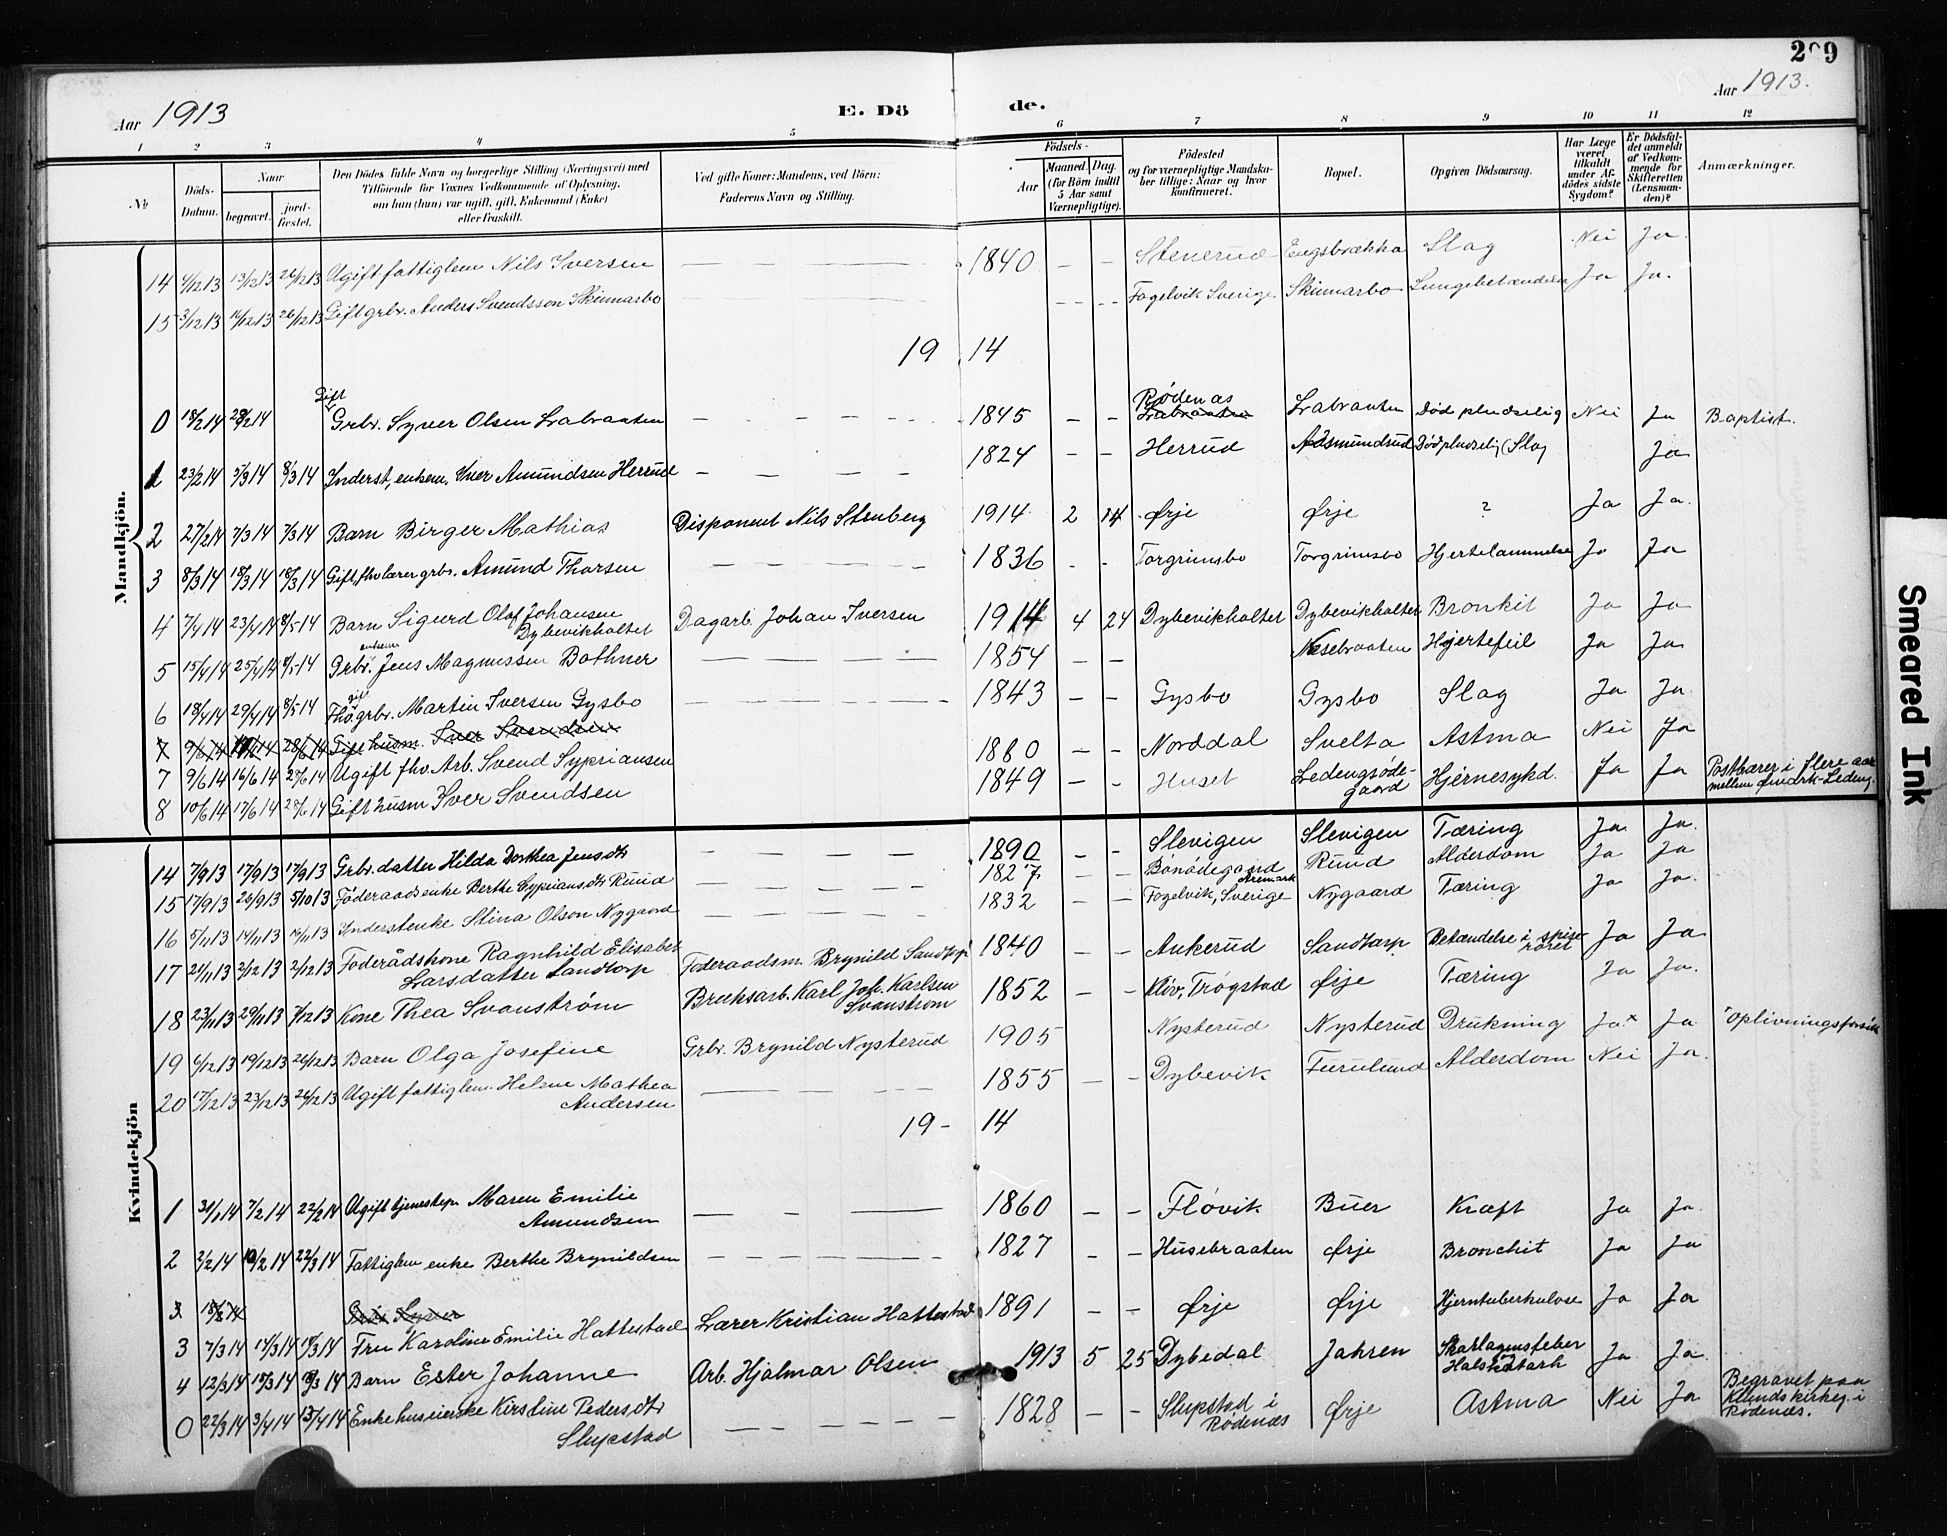 209
Aar 1913
E. Dö de.
Aar 1913.
1 2 3 4 5 6 7 8 9 10 11 12
No
Döds-Datum.
Naar begravet. jordfæstet.
Den Dödes fulde Navn og borgerlige Stilling (Næringsvei) med Tilföiende for Voxnes Vedkommende af Oplysning, om han (hun) var ugift, gift, Enkemand (Enke) eller fraskilt.
Ved gifte Koner: Mandens, ved Börn: Faderens Navn og Stilling.
Födsels- Aar Maaned. Dag. (for Börn indtil 5 Aar samt Værnepligtige).
Födested og for værnepligtige Mandskaber tillige: Naar og hvor konfirmeret.
Bopæl.
Opgiven Dödsaarsag.
Har Læge været tilkaldt under Afdödes sidste Sygdom?
Er Dödsfaldet anmeldt af Vedkommende for Skifteretten (Lensmanden)?
Anmærkninger.
Mandkjön.
14 4/12 13 13/12 13 26/12 13 Ugift fattiglem Nils Iversen — 1840 — — Stenerud Engsbrækka Slag Nei Ja
15 3/12 13 16/12 13 26/12 13 Gift grbr. Anders Svendsson Skinnarbo — — — Fagelvik Sverige Skinnarbo Lungebetændelse Ja Ja.
19 14
0 18/2 14 28/2 14 Gift Grbr. Syver Olsen Labraaten — 1845 — — Rødenas Labraaten Labraaten Død pludselig Nei Ja Baptist.
1 23/2 14 5/3 14 8/3 14 Inderst, enkem. Iver Amundsen Herrud — 1824 — — Herrud Aasmundrud Død pludselig (Slag Ja
2 27/2 14 7/3 14 7/3 14 Barn Birger Mathias Disponent Nils Stenberg 1914 2 14 Ørje Ørje ? Ja Ja.
3 8/3 14 18/3 14 18/3 14 Gift, fhv lærer grbr. Amund Thorsen — 1836 - - Torgrimsbo Torgrimsbo Hjertelammelse Ja Ja
4 7/4 14 23/4 14 8/5 14 Barn Sigurd Olaf Johansen Dybevikholtet Dagarb. Johan Iversen 1914 4 24 Dybevikholtet Dybevikholtet Bronkit Ja Ja
5 15/4 14 25/4 14 8/5 14 Grbr. enkem Jens Magnussen Bothner — 1854 — — Næsebraaten Hjertefeil Ja Ja
6 18/4 14 29/4 14 8/5 14 Fhv gift grbr. Martin Iversen Gysbo — 1843 — — Gysbo Gysbo Slag Ja Ja
7 9/6 14 28/6 14 Gift husm. Iver Svendsen
7 9/6 14 16/6 14 28/6 14 Ugift fhv. Arb. Svend Sypriansen 1880 — — Norddal Svelta Astma Nei Ja
8 10/6 14 17/6 14 28/6 14 Gift husm Iver Svendsen 1849 — - Huset Ledengsødegaard Hjernesykd. Ja Ja Postbærer i flere aar mellem Ømark-Ledeng.
Kvindekjön
14 7/9 13 17/9 13 17/9 13 Grbr.datter Hilda Dorthea Jensdtr — 1890 — — Slevigen Slevigen Tæring Ja Ja.
15 17/9 13 26/9 13 5/10 13 Føderaadsenke Berthe Cypriansdtr Ruud — 1827 — — Bønødegaard Aremark Ruud Alderdom Ja Ja
16 5/11 13 14/11 13 16/11 13 Inderstenke Stina Olson Nygaard — 1832 — — Fogelvik, Sverige Nygaard Tæring Ja Ja.
17 24/11 13 2/12 13 2/12 13 Føderådskone Ragnhild Elisabet Larsdatter Sandtorp Føderaadsm. Brynild Sandtorp 1840 — — Ankerud Sandtorp Betændelse i spiserøret Ja Ja
18 23/11 13 29/11 13 7/12 13 Kone Thea Svanstrøm Bruksarb. Karl Joh. Karlsen Svanstrøm 1852 — — Kløv, Trøgstad Ørje Tæring Ja Ja.
19 6/12 13 19/12 13 26/12 13 Barn Olga Josefine Grbr. Brynild Nysterud 1905 Nysterud Nysterud Drukning Ja x Ja Oplivningsforsøk
20 17/12 13 23/12 13 26/12 13 Ugift fattiglem. Helene Mathea Andersen — 1855 — — Dybevik Furulund Alderdom Nei Ja.
19 - 14
1 31/1 14 7/2 14 22/2 14 Ugift tjenestep. Maren Emilie Amundsen — 1860 — — Fløvik Buer Kræft Ja Ja.
2 2/2 14 10/2 14 22/3 14 Fattiglem enke Berthe Brynildsen — 1827 — — Husebraaten Ørje Bronchit Ja Ja
3 18/2 14 Grbr. Syver
3 7/3 14 17/3 14 17/3 14 Fru Karoline Emilie Hattestad Lærer Kristian Hattestad 1891 — — Ørje Ørje Hjerntuberkulose Ja Ja
4 12/3 14 18/3 14 18/3 14 Barn Ester Johanne Arb. Hjalmar Olsen 1913 5 25 Dybedal Jahren Skarlagensfeber og Halskatarh Ja Ja
0 22/3 14 3/4 14 13/4 14 Enke huseierske Kirstine Pedersdtr Slupstad — 1828 — — Slupstad i Rødenæs Ørje Astma Nei Ja Begravet paa Klunds kirkeg. i Rødenæs.
Smeared Ink